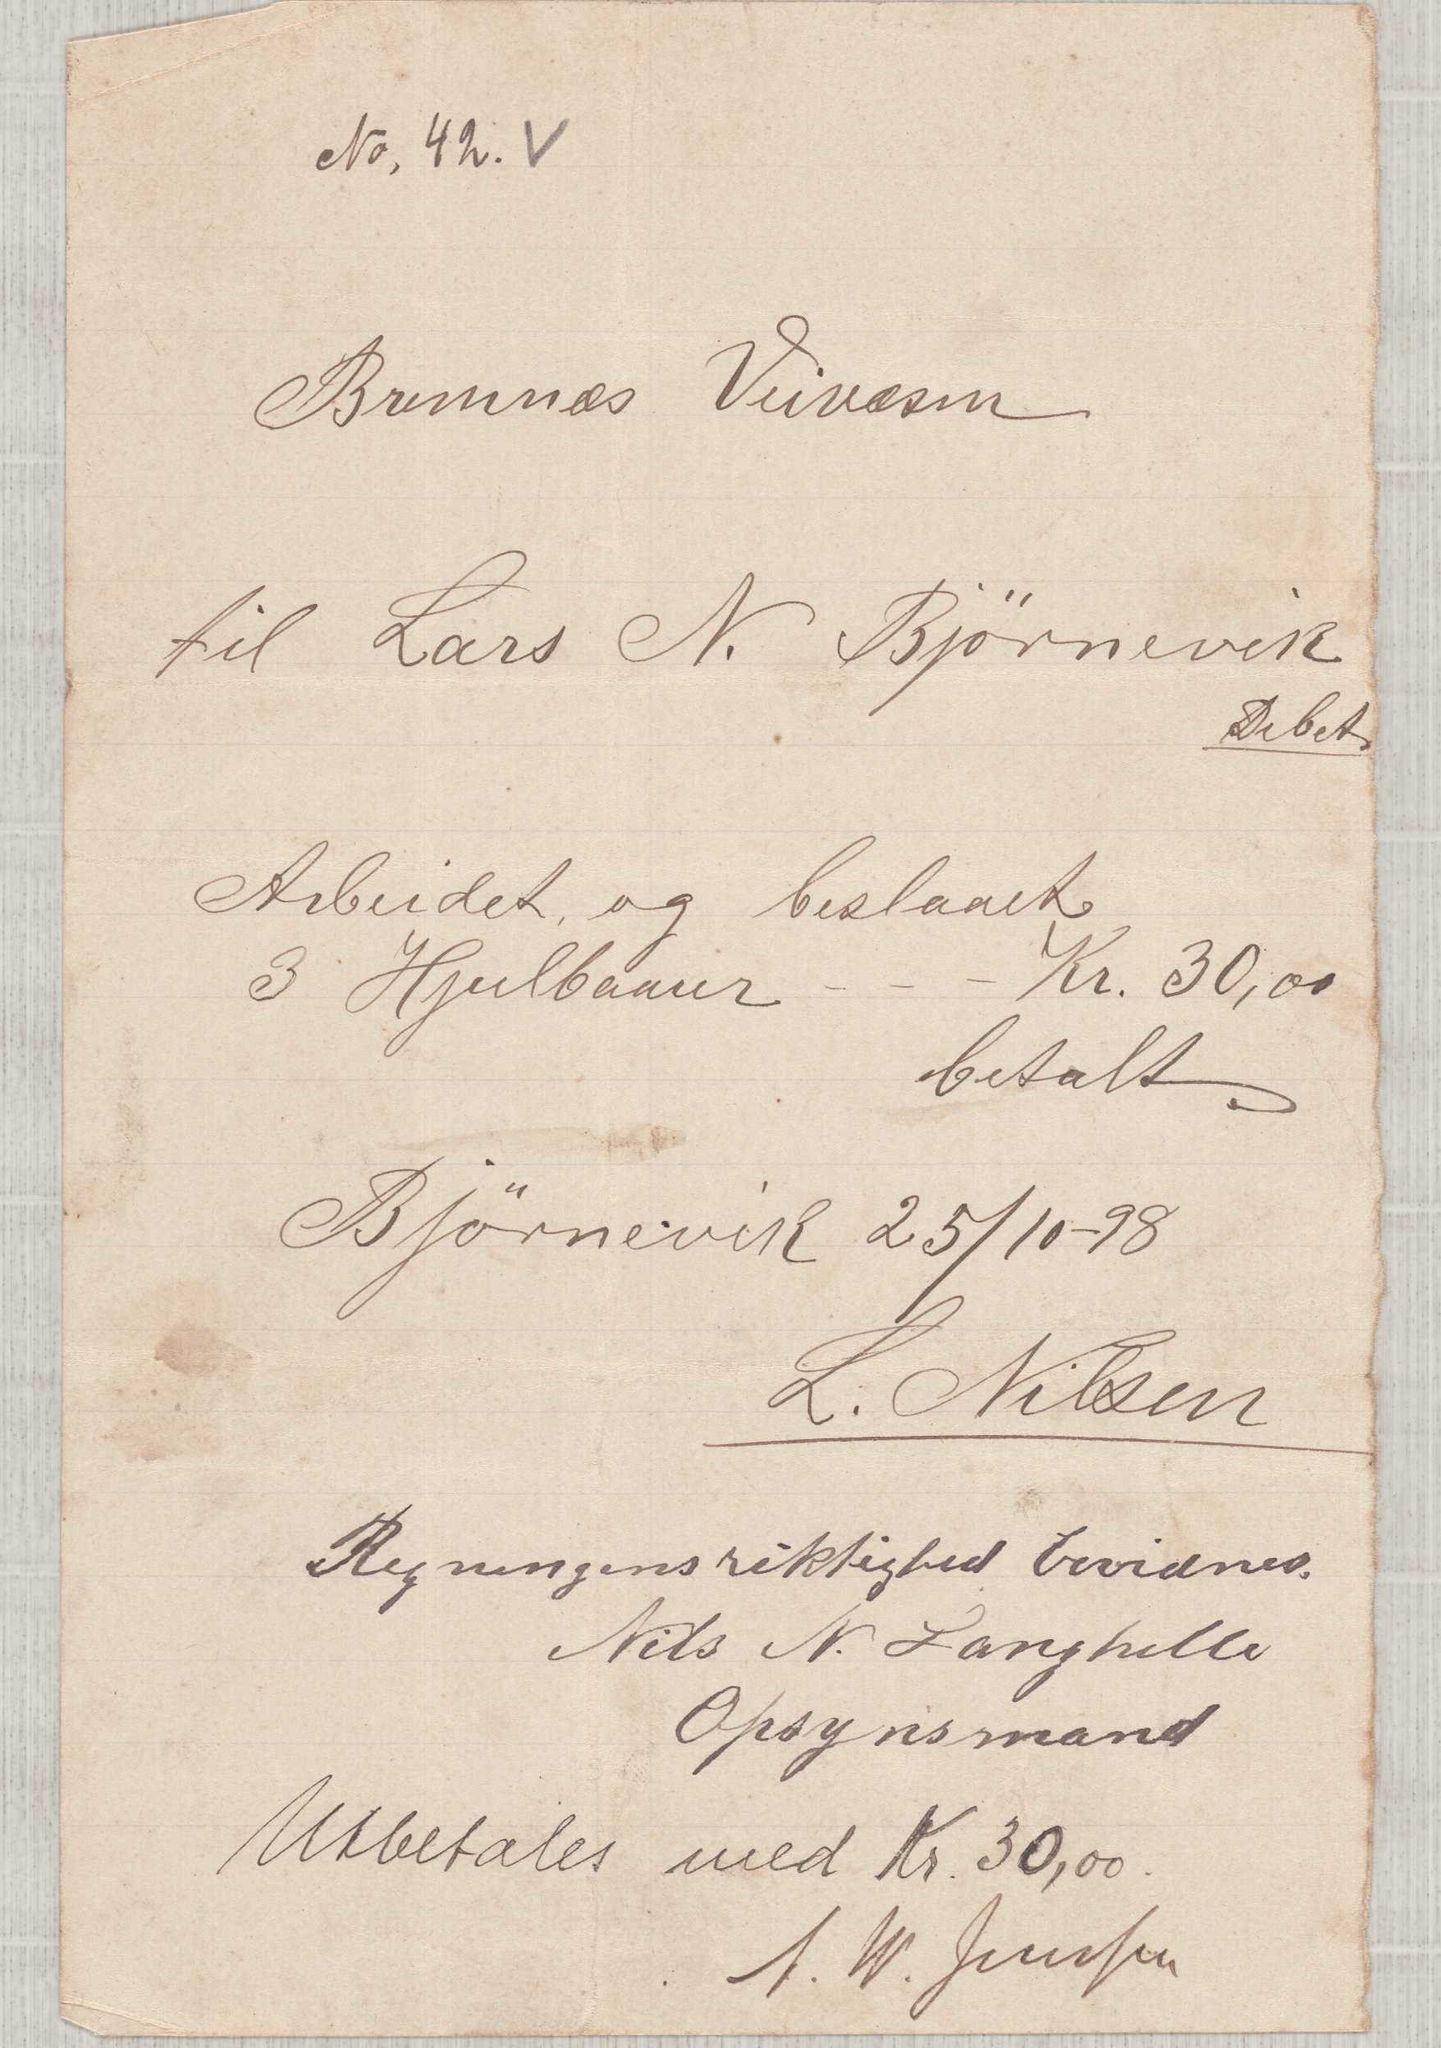 No, 42. V
Bremnæs Veivæsen
til Lars N. Björnevik
Debet
Arbeidet og beslaaet
3 Hjulbaarer - - - Kr. 30,00
betalt
Björnevik 25/10-98
L. Nilsen
Regningens riktighed bevidnes.
Nils N. Langhelle
Opsynsmand
Utbetales med Kr. 30,00.
A. W. Jenssen